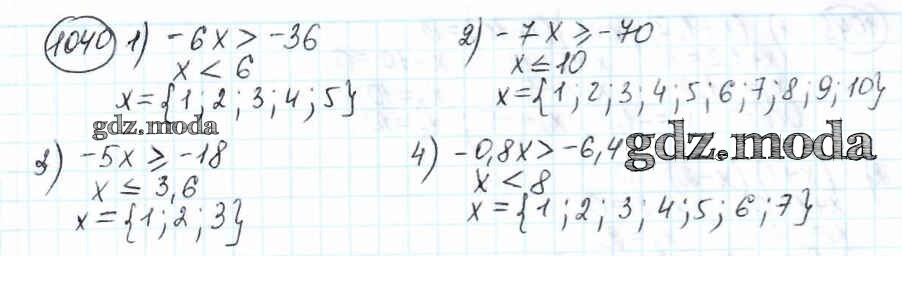 1040 1) -6x > -36
x < 6
x = {1; 2; 3; 4; 5}
2) -7x ⩾ -70
x ≤ 10
x = {1; 2; 3; 4; 5; 6; 7; 8; 9; 10}
gdz.moda
3) -5x ⩾ -18
x ≤ 3,6
x = {1; 2; 3}
4) -0,8x > -6,4
x < 8
x = {1; 2; 3; 4; 5; 6; 7}
gdz.moda